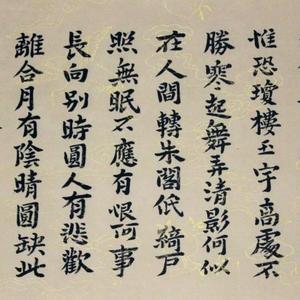 惟恐瓊樓玉宇高處不
勝寒起舞弄清影何似
在人間轉朱閣低綺戶
照無眠不應有恨何事
長向别時圓人有悲歡
離合月有陰晴圓缺此